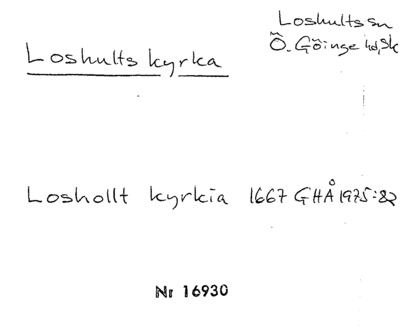 Loshults kyrka
Loshults sn
Ö. Göinge hd, Sk
Loshollt kyrkia 1667 GHÅ 1975:82
Nr 16930